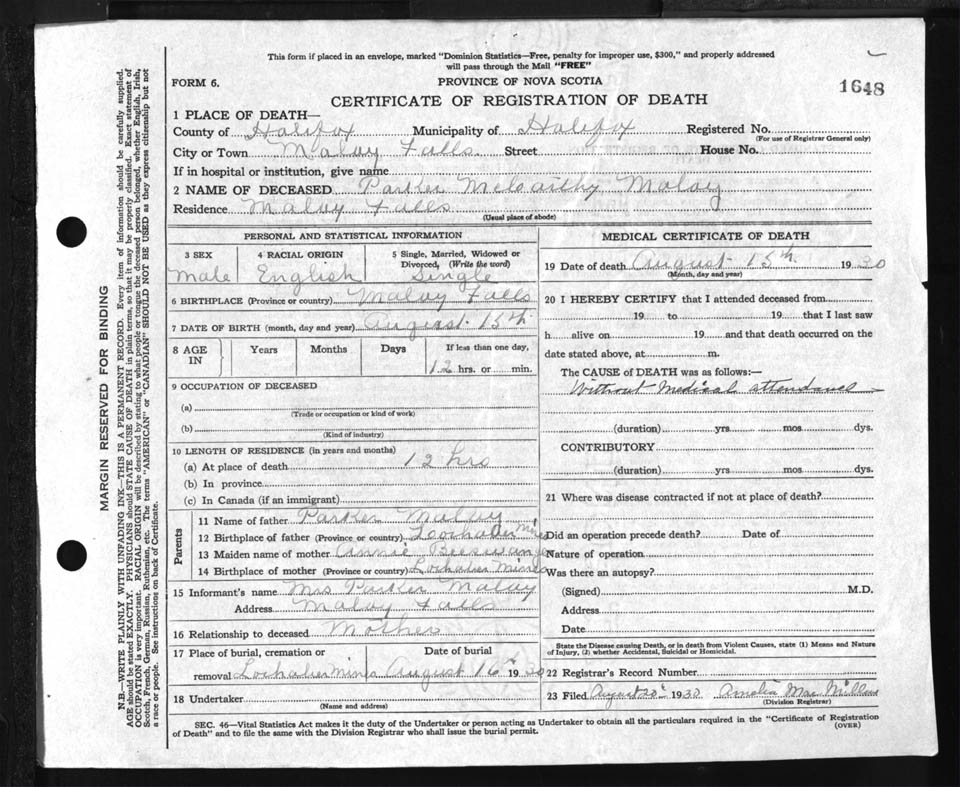 This form if placed in an envelope, marked "Dominion Statistics—Free, penalty for improper use, $300," and properly addressed
will pass through the Mail "FREE"
FORM 6.
PROVINCE OF NOVA SCOTIA
1648
CERTIFICATE OF REGISTRATION OF DEATH
1 PLACE OF DEATH—
County of Halifax Municipality of Halifax Registered No.
(For use of Registrar General only)
City or Town Maloy Falls Street House No.
If in hospital or institution, give name
2 NAME OF DECEASED Parker McCarthy Maloy
Residence Maloy Falls
(Usual place of abode)
PERSONAL AND STATISTICAL INFORMATION
3 SEX 4 RACIAL ORIGIN 5 Single, Married, Widowed or
Divorced, (Write the word)
Male English Single
6 BIRTHPLACE (Province or country) Maloy Falls
7 DATE OF BIRTH (month, day and year) August 15th
8 AGE IN Years Months Days If less than one day,
12 hrs. or min.
9 OCCUPATION OF DECEASED
(a)
(Trade or occupation or kind of work)
(b)
(Kind of industry)
10 LENGTH OF RESIDENCE (in years and months)
(a) At place of death 12 hrs
(b) In province
(c) In Canada (if an immigrant)
Parents
11 Name of father Parker Maloy
12 Birthplace of father (Province or country) Lochaber Mines
13 Maiden name of mother Annie
14 Birthplace of mother (Province or country) Lochaber Mines
15 Informant's name Mrs Parker Maloy
Address Maloy Falls
16 Relationship to deceased Mother
17 Place of burial, cremation or Date of burial
removal Lochaber Mines August 16th 1930
18 Undertaker
(Name and address)
MEDICAL CERTIFICATE OF DEATH
19 Date of death August 15th 1930
(Month, day and year)
20 I HEREBY CERTIFY that I attended deceased from
19 to 19 that I last saw
h alive on 19 and that death occurred on the
date stated above, at m.
The CAUSE of DEATH was as follows:—
Without Medical attendance
(duration) yrs mos dys.
CONTRIBUTORY
(duration) yrs mos dys.
21 Where was disease contracted if not at place of death?
Did an operation precede death? Date of
Nature of operation
Was there an autopsy?
(Signed) M.D.
Address
Date
State the Disease causing Death, or in death from Violent Causes, state (1) Means and Nature
of Injury, (2) whether Accidental, Suicidal or Homicidal.
22 Registrar's Record Number
23 Filed August 20 1930 Amelia MacMillan
(Division Registrar)
SEC. 46—Vital Statistics Act makes it the duty of the Undertaker or person acting as Undertaker to obtain all the particulars required in the "Certificate of Registration
of Death" and to file the same with the Division Registrar who shall issue the burial permit.
(OVER)
MARGIN RESERVED FOR BINDING
N.B.—WRITE PLAINLY WITH UNFADING INK—THIS IS A PERMANENT RECORD. Every item of information should be carefully supplied.
AGE should be stated EXACTLY. PHYSICIANS should STATE CAUSE OF DEATH in plain terms, so that it may be properly classified. Exact statement of
OCCUPATION is very important. RACIAL ORIGIN will be described by stating to what people or tongue the deceased person belonged, whether English, Irish,
Scotch, French, German, Russian, Ruthenian, etc. The terms "AMERICAN" or "CANADIAN" SHOULD NOT BE USED as they express citizenship but not
a race or people. See instructions on back of Certificate.